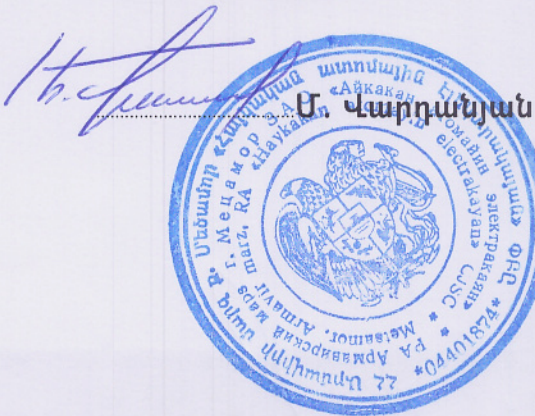 Մ. Վարդանյան
ՀՀ Արմավիրի մարզ ք. Մեծամոր «Հայկական ատոմային էլեկտրակայան» ՓԲԸ
*04401874*
РА Армавирский марз г. Мецамор ЗАО «Айкакан атомайин электракаян»
Metsamor, Armavir marz, RA «Haykakan electrakayan» CJSC